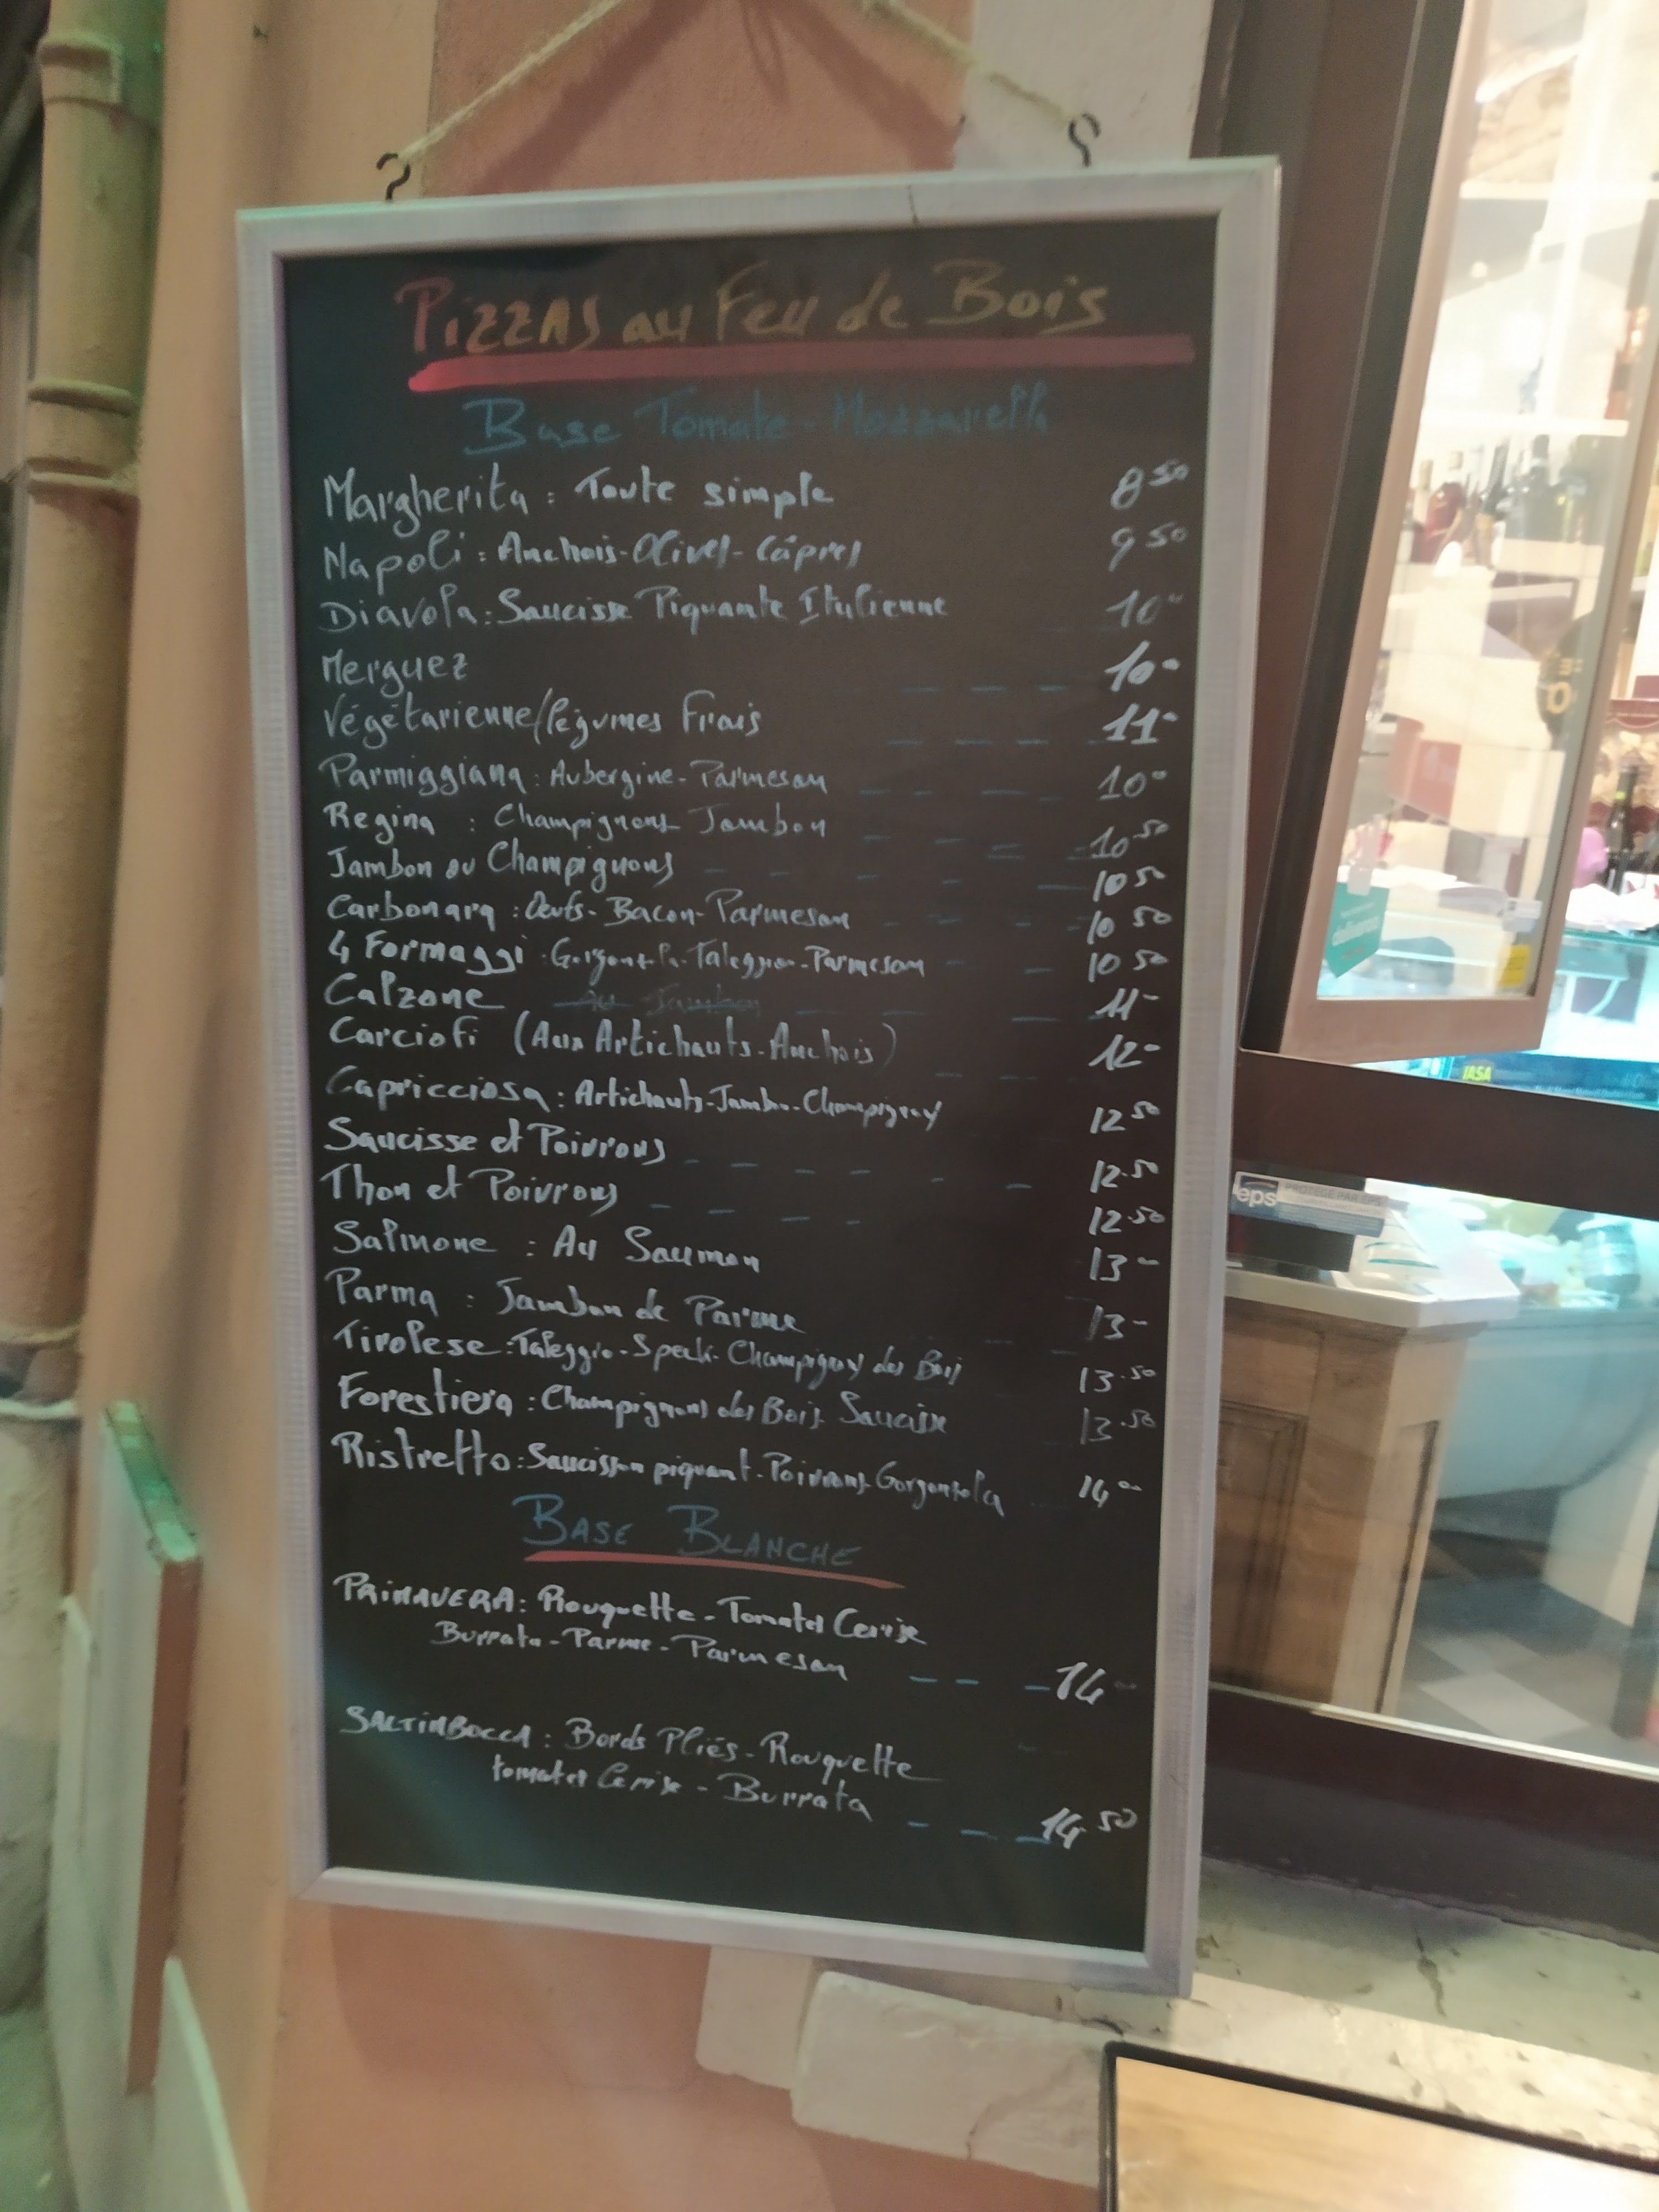 Pizzas au Feu de Bois
Base Tomate - Mozzarella
Margherita : Toute simple 8 50
Napoli : Anchois - Olives - Câpres 9 50
Diavola : Saucisse Piquante Italienne 10 -
Merguez 10 -
Végétarienne/légumes Frais 11 -
Parmiggiana : Aubergine - Parmesan 10 -
Regina : Champignons Jambon 10 50
Jambon ou Champignons 10 50
Carbonara : Oeufs - Bacon - Parmesan 10 50
4 Formaggi : Gorgonzola - Taleggio - Parmesan 10 50
Calzone Au Jambon 11 -
Carciofi (Aux Artichauts - Anchois) 12 -
Capricciosa : Artichauts - Jambon - Champignons 12 50
Saucisse et Poivrons 12.50
Thon et Poivrons 12.50
Salmone : Au Saumon 13 -
Parma : Jambon de Parme 13 -
Tirolese : Taleggio - Speck - Champignons des Bois 13.50
Forestiera : Champignons des Bois - Saucisse 13.50
Ristretto : Saucisson piquant - Poivrons - Gorgonzola 14 -
BASE BLANCHE
PRIMAVERA : Rouquette - Tomates Cerise
Burrata - Parme - Parmesan 14 -
SALTIMBOCCA : Bords Pliés - Rouquette
tomates Cerise - Burrata 14.50
eps PROTÉGÉ PAR EPS